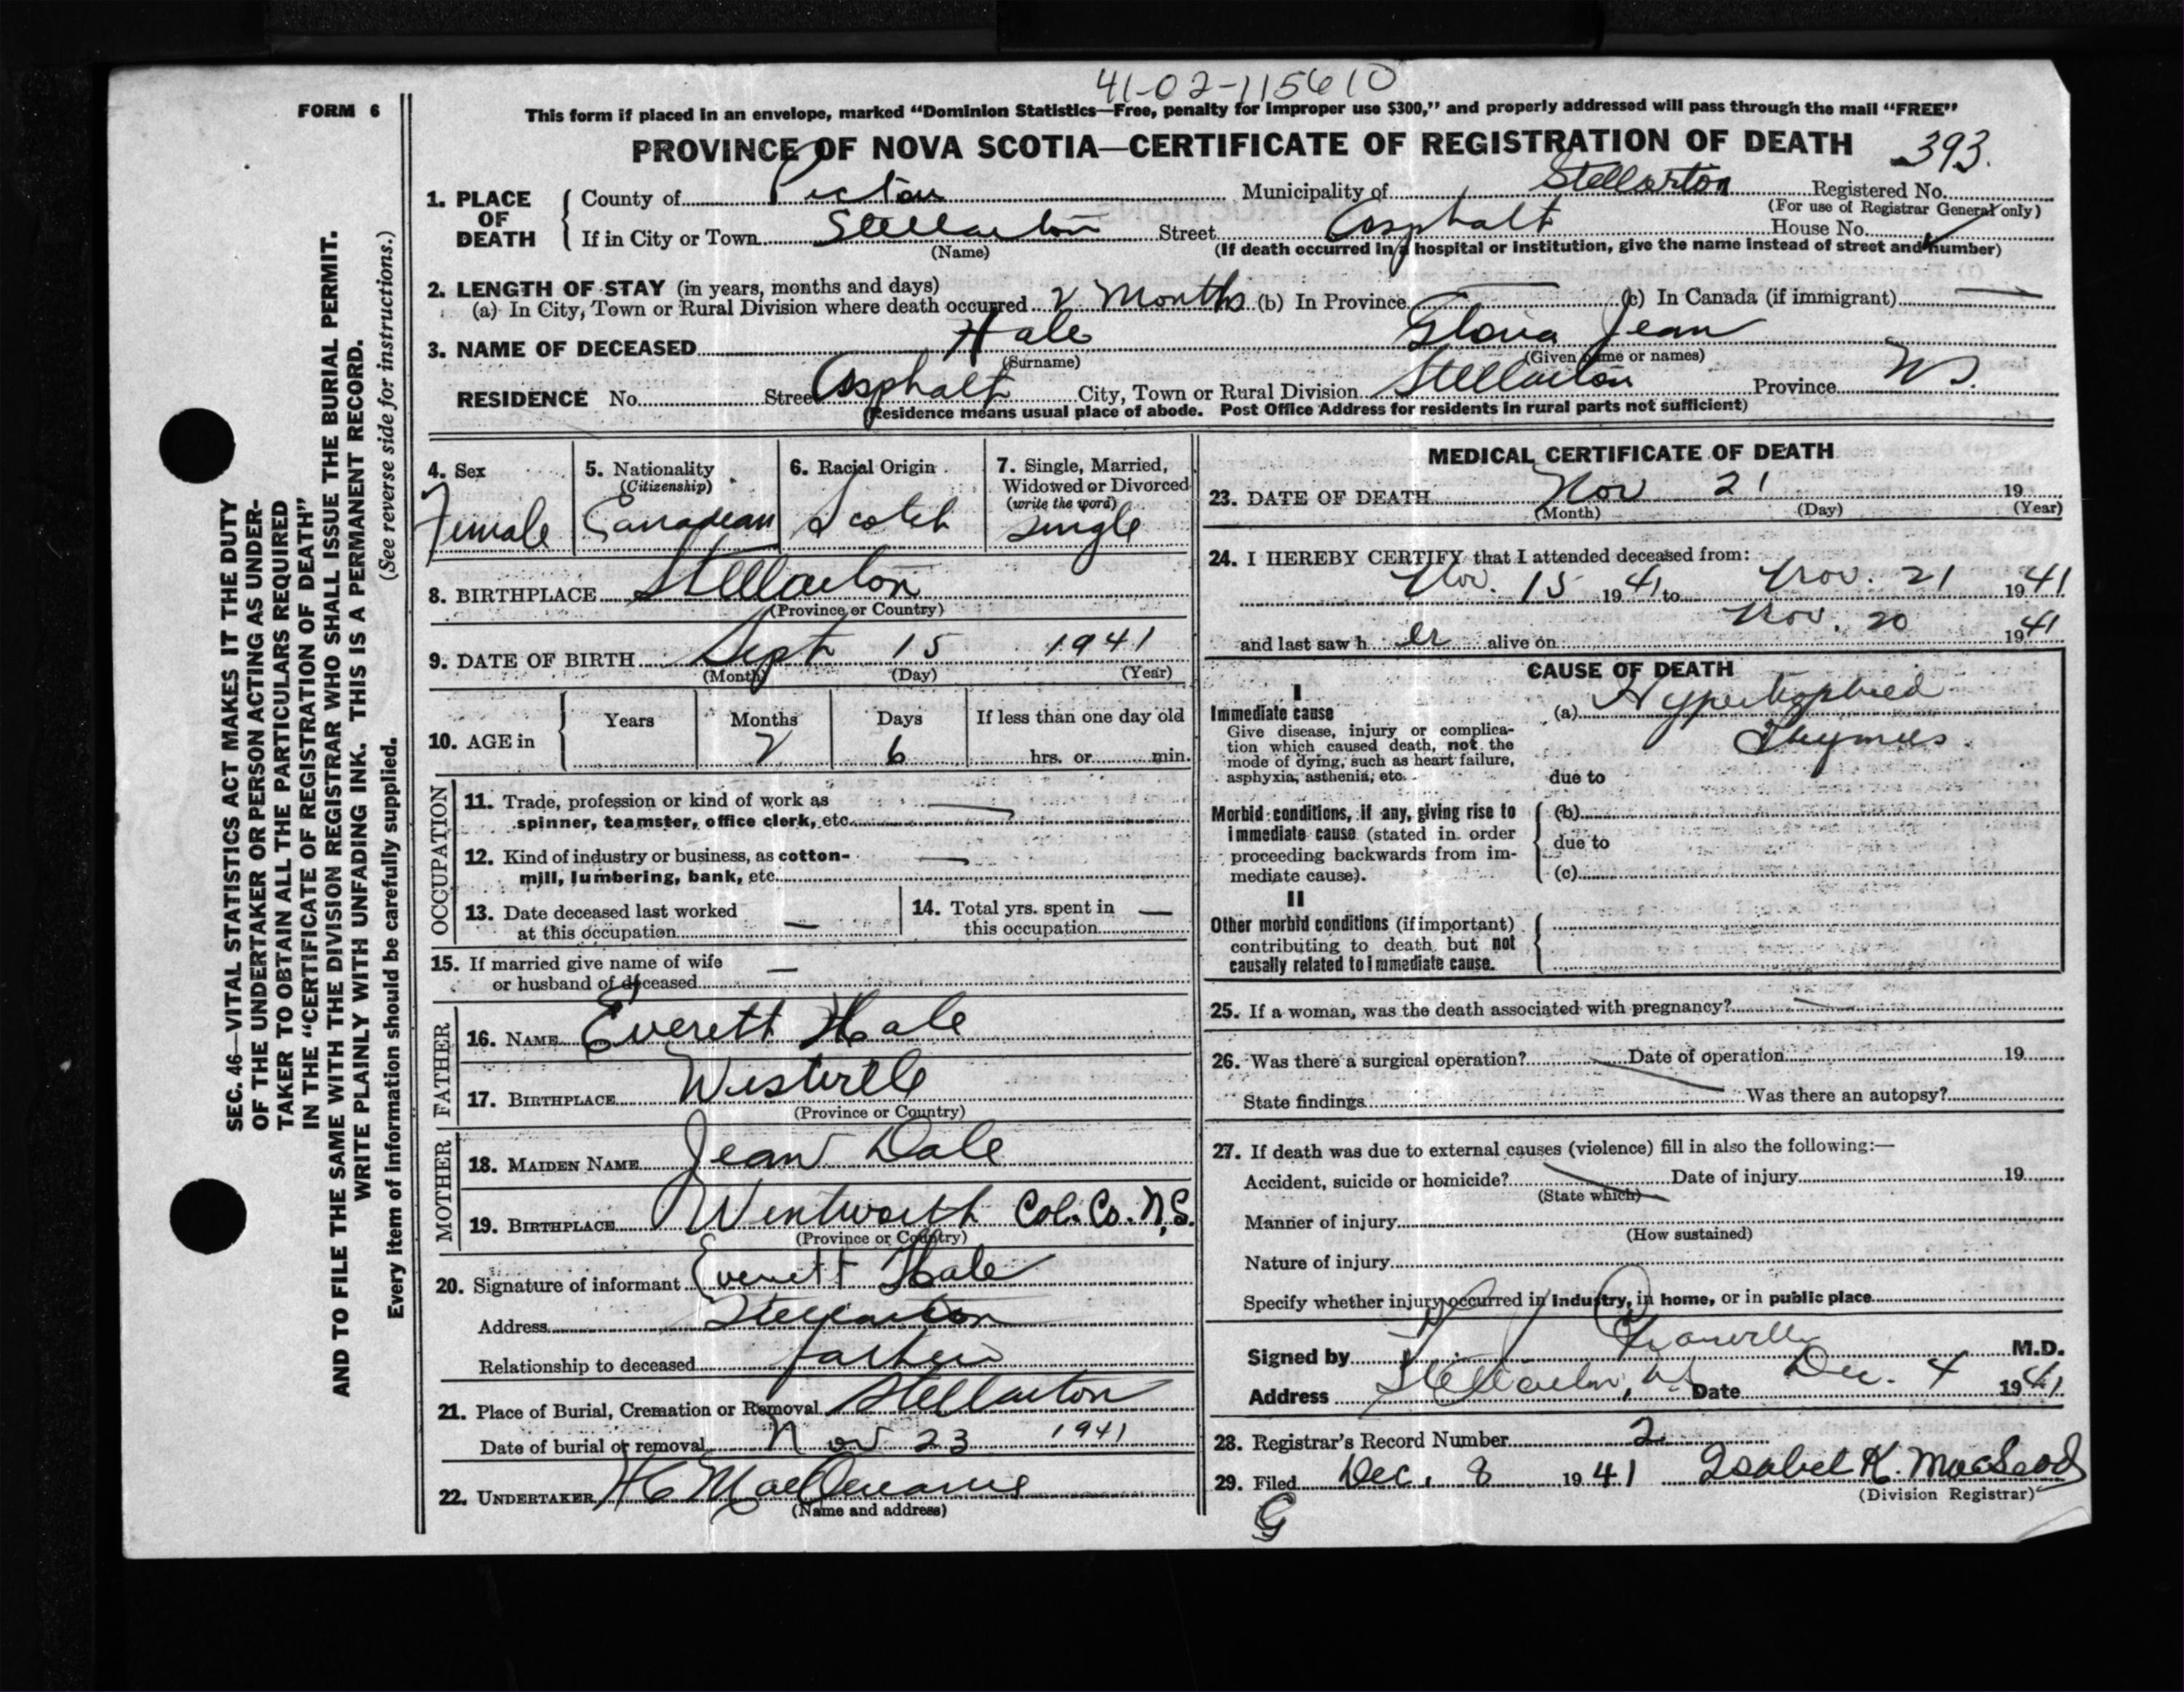 41-02-115610
FORM 6
This form if placed in an envelope, marked "Dominion Statistics—Free, penalty for improper use $300," and properly addressed will pass through the mail "FREE"
PROVINCE OF NOVA SCOTIA—CERTIFICATE OF REGISTRATION OF DEATH 393.
1. PLACE OF DEATH County of Pictou Municipality of Stellarton Registered No.
(For use of Registrar General only)
If in City or Town Stellarton Street Asphalt House No.
(Name) (If death occurred in a hospital or institution, give the name instead of street and number)
2. LENGTH OF STAY (in years, months and days)
(a) In City, Town or Rural Division where death occurred 2 Months (b) In Province — (c) In Canada (if immigrant) —
3. NAME OF DECEASED Hale Gloria Jean
(Surname) (Given name or names)
RESIDENCE No. Street Asphalt City, Town or Rural Division Stellarton Province NS.
(Residence means usual place of abode. Post Office Address for residents in rural parts not sufficient)
4. Sex Female
5. Nationality (Citizenship) Canadian
6. Racial Origin Scotch
7. Single, Married, Widowed or Divorced (write the word) Single
8. BIRTHPLACE Stellarton
(Province or Country)
9. DATE OF BIRTH Sept 15 1941
(Month) (Day) (Year)
10. AGE in Years Months 2 Days 6 If less than one day old hrs. or min.
OCCUPATION
11. Trade, profession or kind of work as spinner, teamster, office clerk, etc. —
12. Kind of industry or business, as cotton-mill, lumbering, bank, etc. —
13. Date deceased last worked at this occupation —
14. Total yrs. spent in this occupation —
15. If married give name of wife or husband of deceased —
FATHER
16. NAME Everett Hale
17. BIRTHPLACE Westville
(Province or Country)
MOTHER
18. MAIDEN NAME Jean Dale
19. BIRTHPLACE Wentworth Col. Co. N.S.
(Province or Country)
20. Signature of informant Everett Hale
Address Stellarton
Relationship to deceased father
21. Place of Burial, Cremation or Removal Stellarton
Date of burial or removal Nov 23 1941
22. UNDERTAKER H C
(Name and address)
MEDICAL CERTIFICATE OF DEATH
23. DATE OF DEATH Nov 21 19
(Month) (Day) (Year)
24. I HEREBY CERTIFY that I attended deceased from:
Nov. 15 1941 to Nov. 21 1941
and last saw h er alive on Nov. 20 1941
CAUSE OF DEATH
I
Immediate cause
Give disease, injury or complication which caused death, not the mode of dying, such as heart failure, asphyxia, asthenia, etc.
(a) Hypertrophied Thymus
due to
Morbid conditions, if any, giving rise to immediate cause (stated in order proceeding backwards from immediate cause).
(b)
due to
(c)
II
Other morbid conditions (if important) contributing to death but not causally related to immediate cause.
25. If a woman, was the death associated with pregnancy?
26. Was there a surgical operation? Date of operation 19
State findings Was there an autopsy?
27. If death was due to external causes (violence) fill in also the following:—
Accident, suicide or homicide? Date of injury 19
(State which)
Manner of injury
(How sustained)
Nature of injury
Specify whether injury occurred in industry, in home, or in public place
Signed by M.D.
Address Stellarton, NS Date Dec. 4 1941
28. Registrar's Record Number 2
29. Filed Dec. 8 1941 Isabel K. MacLeod
(Division Registrar)
G
SEC. 46—VITAL STATISTICS ACT MAKES IT THE DUTY
OF THE UNDERTAKER OR PERSON ACTING AS UNDER-
TAKER TO OBTAIN ALL THE PARTICULARS REQUIRED
IN THE "CERTIFICATE OF REGISTRATION OF DEATH"
AND TO FILE THE SAME WITH THE DIVISION REGISTRAR WHO SHALL ISSUE THE BURIAL PERMIT.
WRITE PLAINLY WITH UNFADING INK. THIS IS A PERMANENT RECORD.
Every item of information should be carefully supplied. (See reverse side for instructions.)